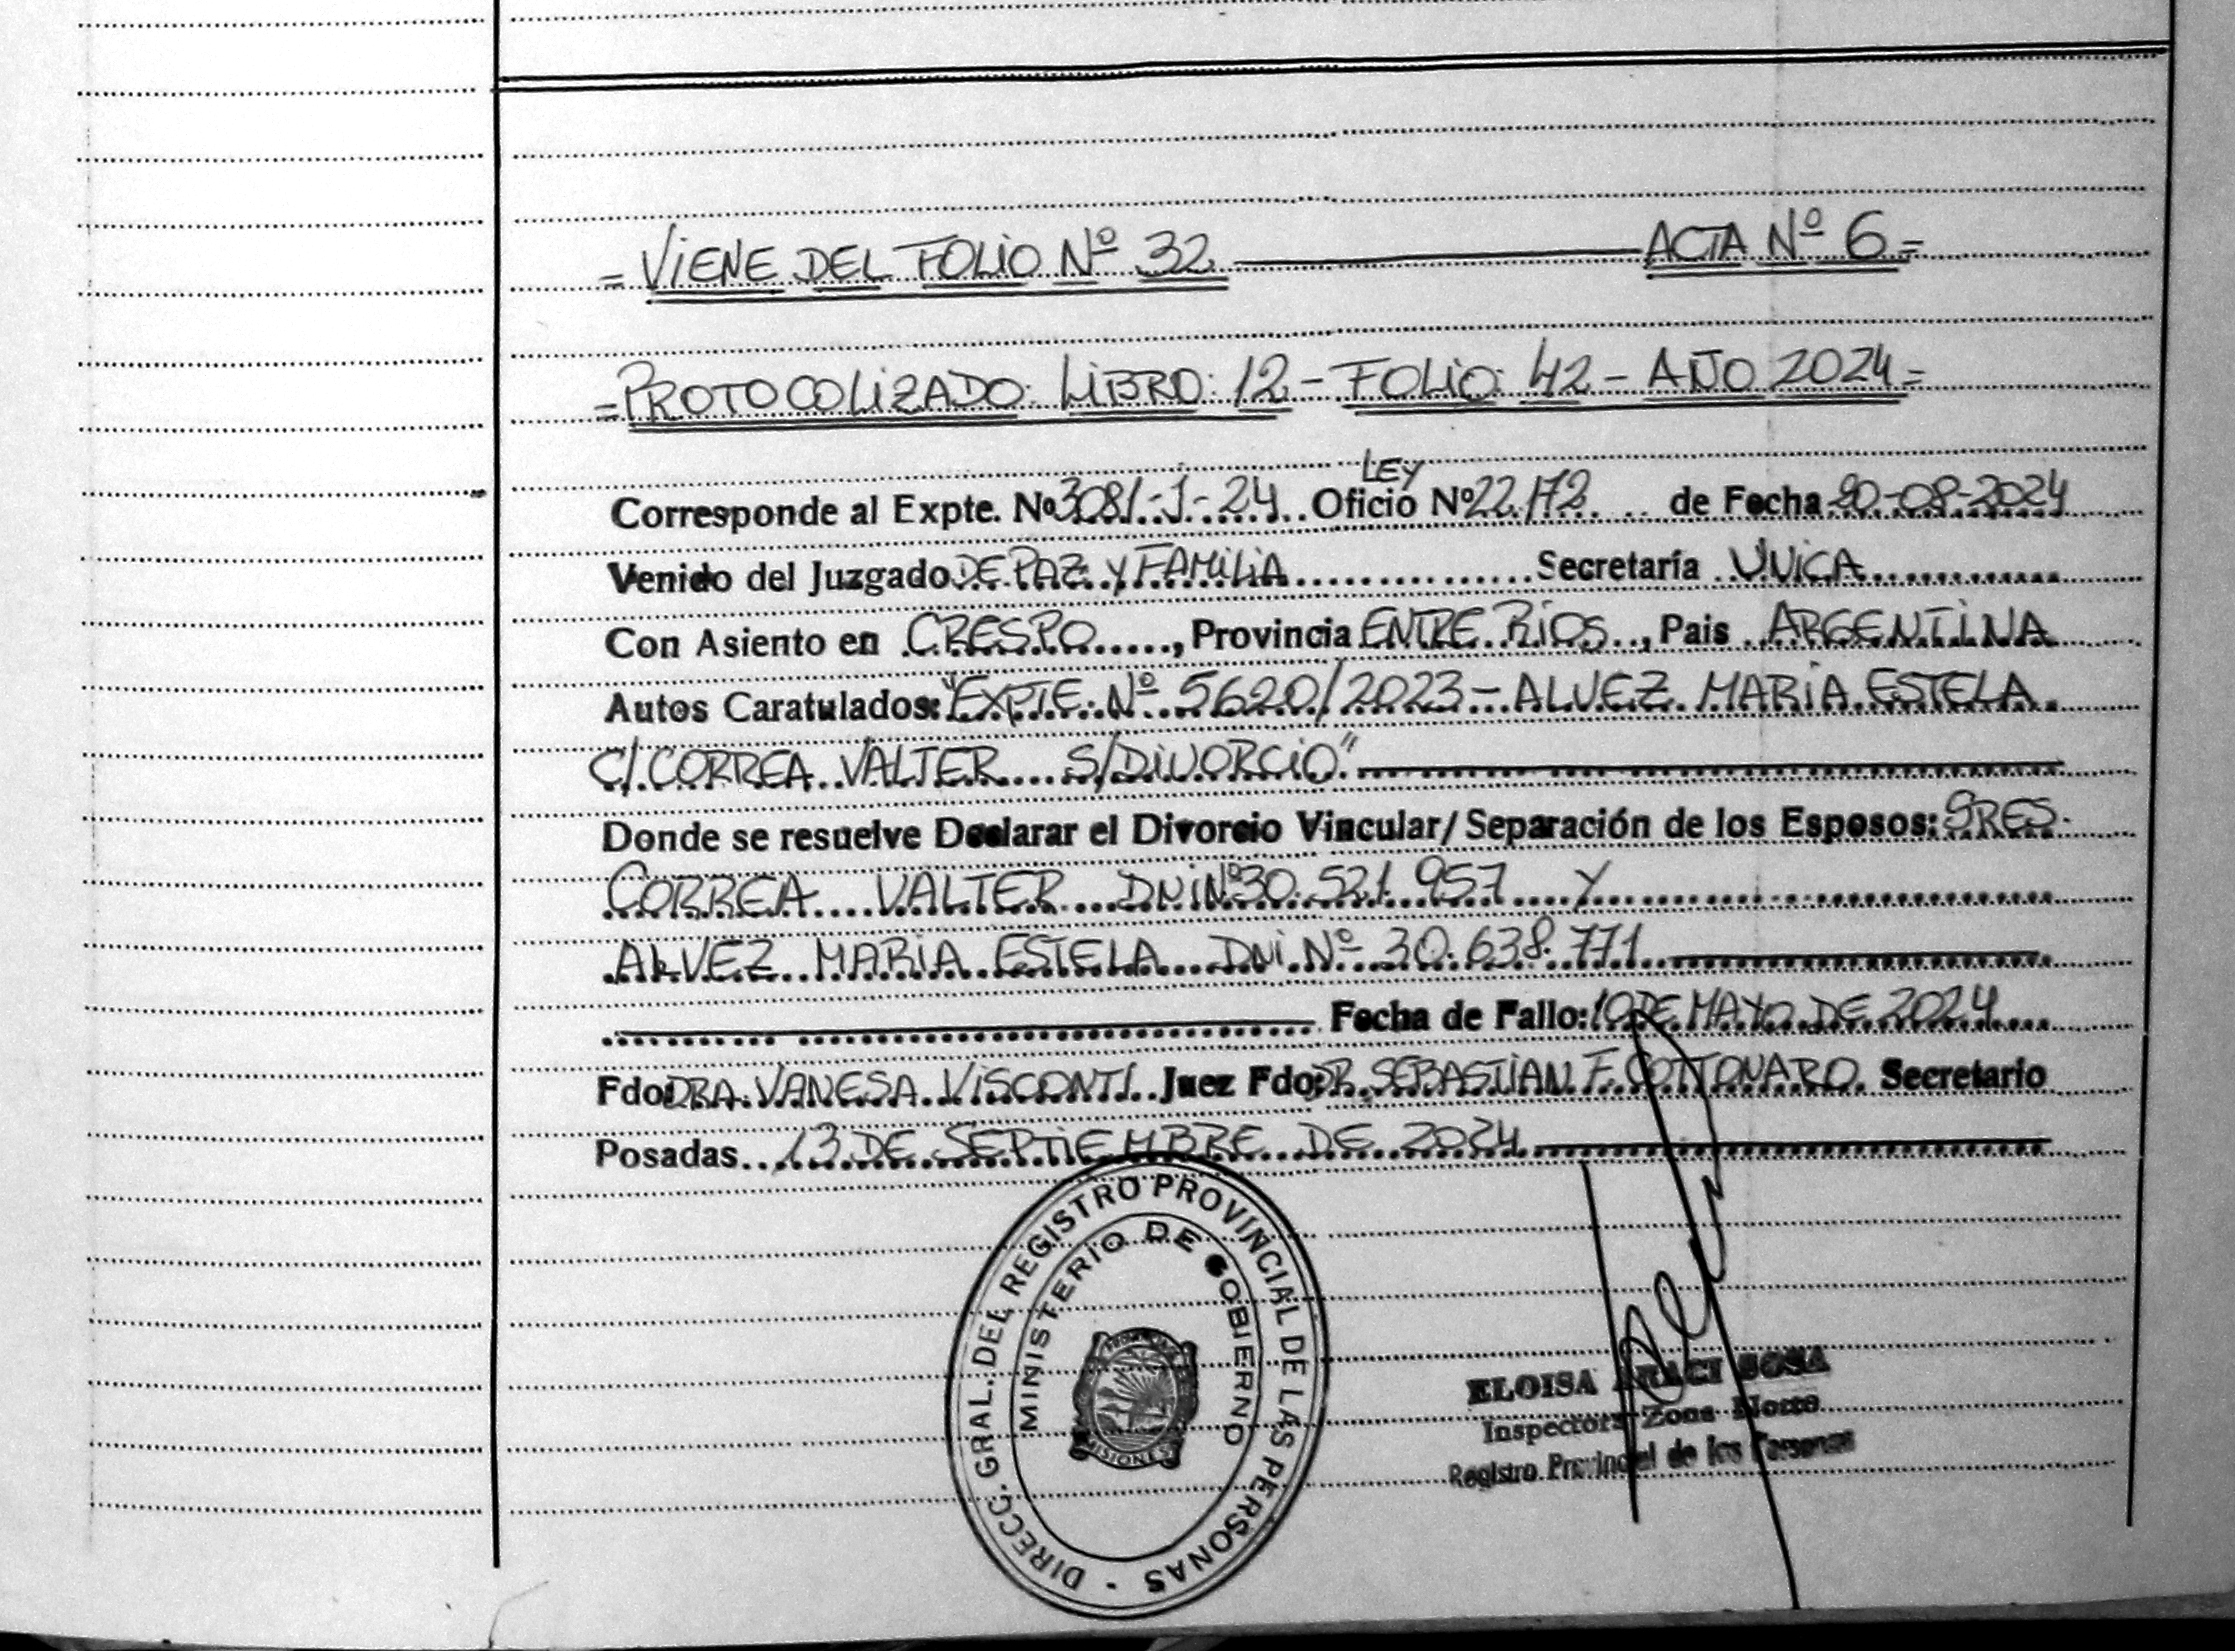 = VIENE DEL FOLIO Nº 32 ACTA Nº 6 =
= PROTOCOLIZADO: LIBRO: 12 - FOLIO: 42 - AÑO 2024 =
LEY
Corresponde al Expte. Nº 3081-J-24 Oficio Nº 22.172 de Fecha 20-08-2024
Venido del Juzgado DE PAZ Y FAMILIA Secretaría UNICA
Con Asiento en CRESPO, Provincia ENTRE RIOS, Pais ARGENTINA
Autos Caratulados: "EXPTE. Nº 5620/2023 - ALVEZ MARIA ESTELA
C/ CORREA VALTER S/DIVORCIO"
Donde se resuelve Declarar el Divorcio Vincular/Separación de los Esposos: SRES.
CORREA VALTER DNI Nº 30.521.957 Y
ALVEZ MARIA ESTELA DNI Nº 30.638.771
Fecha de Fallo: 10 DE MAYO DE 2024
Fdo: DRA. VANESA VISCONTI. Juez Fdo: DR. SEBASTIAN F. COTTONARO. Secretario
Posadas 13 DE SEPTIEMBRE DE 2024
DIRECC. GRAL. DEL REGISTRO PROVINCIAL DE LAS PERSONAS
MINISTERIO DE GOBIERNO
MISIONES
ELOISA ARACI SOSA
Inspectora Zona Norte
Registro Provincial de las Personas